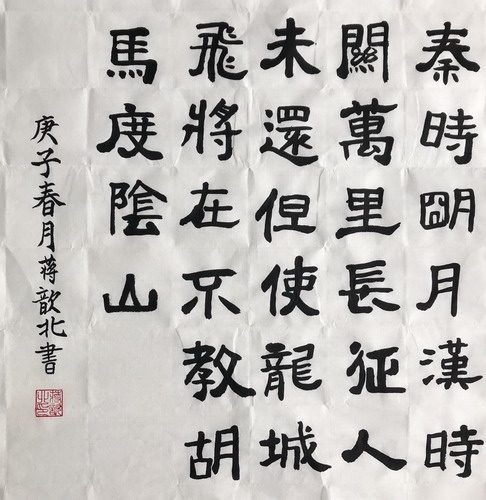 秦時朙月漢時
關萬里長征人
未還但使龍城
飛將在不教胡
馬度陰山
庚子春月蔣歆北書